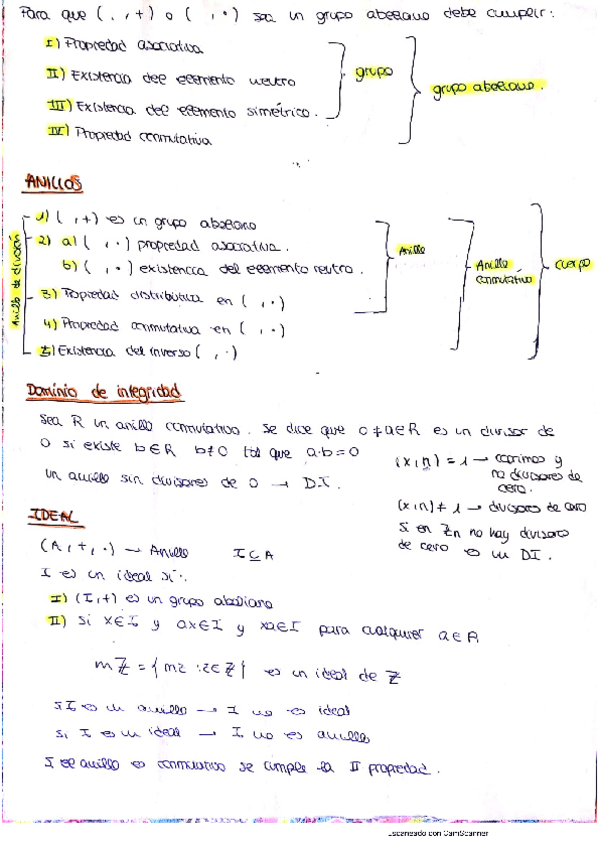 Para que ( . , +) o ( , ·) sea un grupo abeliano debe cumplir:
I) Propiedad asociativa
II) Existencia del elemento neutro
III) Existencia del elemento simétrico.
IV) Propiedad conmutativa
grupo
grupo abeliano.
ANILLOS
1) ( , +) es un grupo abeliano
2) a) ( , ·) propiedad asociativa.
b) ( , ·) existencia del elemento neutro.
3) Propiedad distributiva en ( , ·)
4) Propiedad conmutativa en ( , ·)
5) Existencia del inverso ( , ·)
Anillo de división
Anillo
Anillo
conmutativo
cuerpo
Dominio de integridad
Sea R un anillo conmutativo. Se dice que 0 ≠ a ∈ R es un divisor de
0 si existe b ∈ R b ≠ 0 tal que a·b = 0
un anillo sin divisores de 0 → D.I.
(x,n) = 1 → coprimos y
no divisores de
cero.
(x,n) ≠ 1 → divisores de cero
Si en Zn no hay divisores
de cero es un DI.
IDEAL
(A, +, ·) → Anillo I ⊆ A
I es un ideal si:
I) (I, +) es un grupo abeliano
II) Si x ∈ I y ax ∈ I y xa ∈ I para cualquier a ∈ A
mZ = {mz : z ∈ Z} es un ideal de Z
Si I es un anillo → I no es ideal
si I es un ideal → I no es anillo
Si el anillo es conmutativo se cumple la II propiedad.
Escaneado con CamScanner